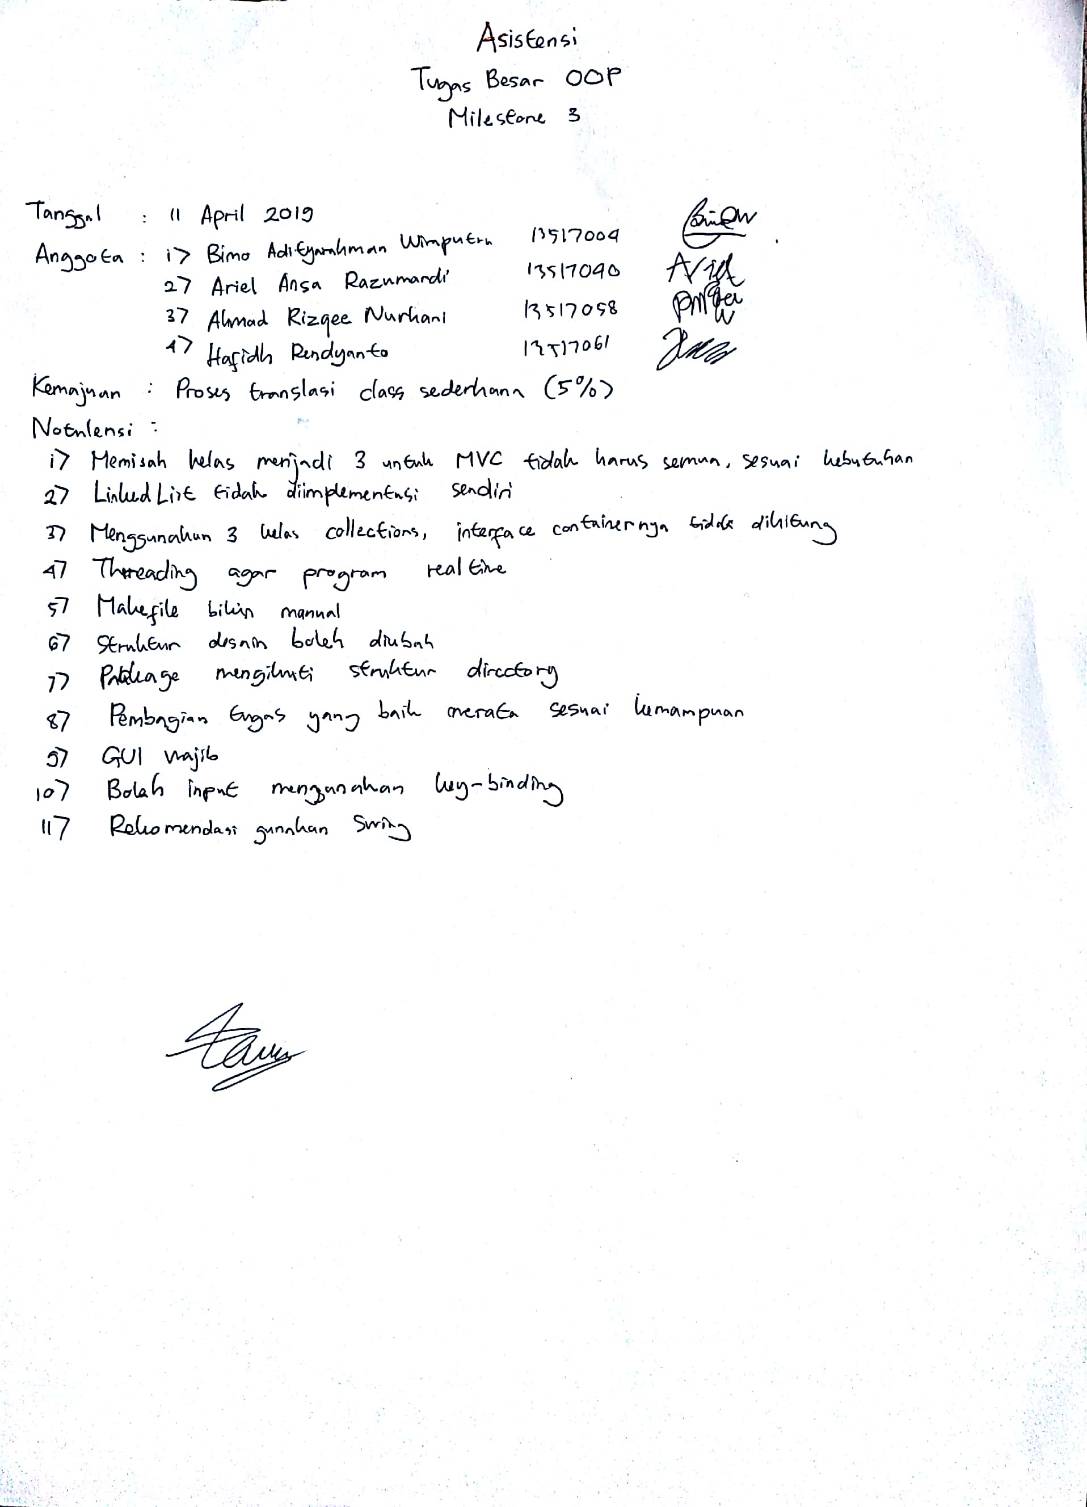 Asistensi
Tugas Besar OOP
Milestone 3
Tanggal : 11 April 2019
Anggota : 1> Bimo Adityarahman Wiraputra 13517004
2> Ariel Ansa Razumardi 13517040
3> Ahmad Rizqee Nurhani 13517058
4> Hafidh Rendyanto 13517061
Kemajuan : Proses translasi class sederhana (5%)
Notulensi :
1> Memisah kelas menjadi 3 untuk MVC tidak harus semua, sesuai kebutuhan
2> Linked List tidak diimplementasi sendiri
3> Menggunakan 3 kelas collections, interface containernya tidak dihitung
4> Threading agar program real time
5> Makefile bikin manual
6> Struktur desain boleh diubah
7> Package mengikuti struktur directory
8> Pembagian tugas yang baik merata sesuai kemampuan
9> GUI wajib
10> Boleh input menggunakan key-binding
11> Rekomendasi gunakan Swing